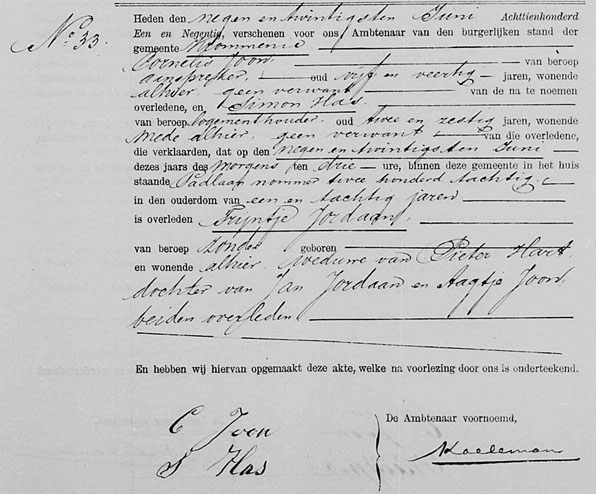 No. 33.
Heden den negen en twintigsten Juni Achttienhonderd
Een en Negentig, verschenen voor ons, Ambtenaar van den burgerlijken stand der
gemeente Krommenie
Cornelis Joon van beroep
aanspreker. oud vijf en veertig jaren, wonende
alhier. geen verwant van de na te noemen
overledene, en Simon Has.
van beroep logementhouder. oud twee en zestig jaren, wonende
mede alhier. geen verwant van die overledene,
die verklaarden, dat op den negen en twintigsten Juni
dezes jaars des morgens ten drie ure, binnen deze gemeente in het huis
staande Padlaan nommer twee honderd tachtig.
in den ouderdom van een en tachtig jaren
is overleden Trijntje Jordaan.
van beroep zonder geboren
en wonende alhier. weduwe van Pieter Hart.
dochter van Jan Jordaan en Aagtje Joon
beiden overleden
En hebben wij hiervan opgemaakt deze akte, welke na voorlezing door ons is onderteekend.
C Joon
S Has
De Ambtenaar voornoemd,
Koeleman